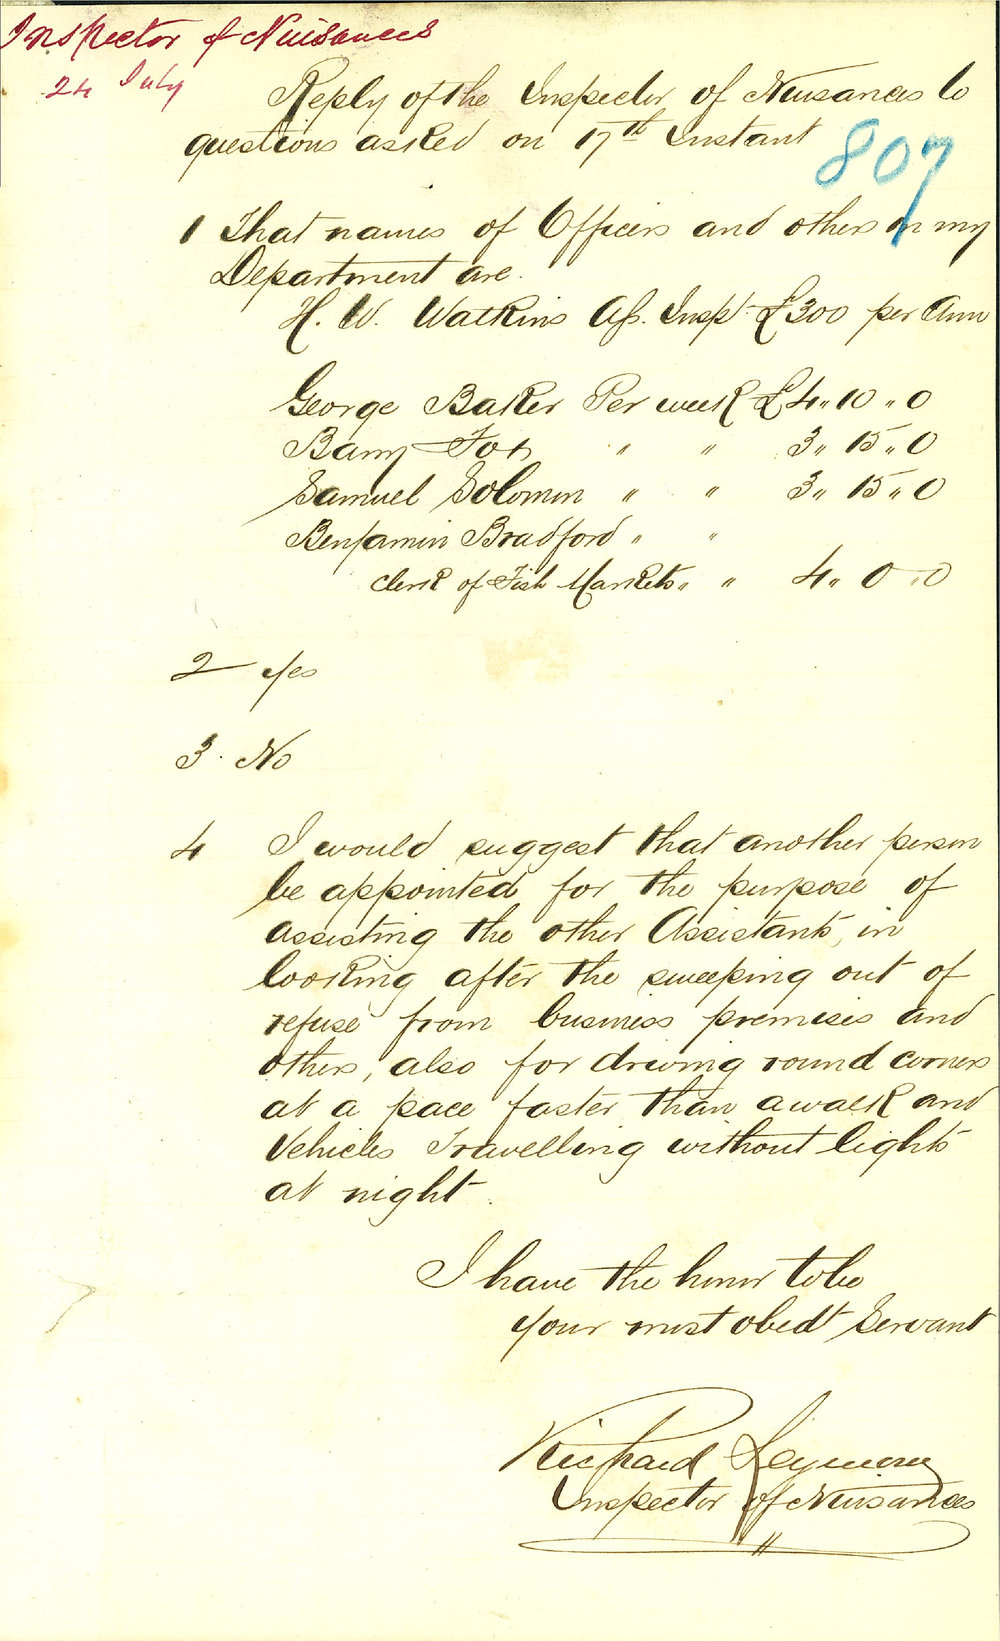 Inspector of Nuisances
24 July
Reply of the Inspector of Nuisances to
questions asked on 17th Instant
807
1 That names of Officers and others in my
Department are.
H. W. Watkins Ass. Inspr £300 per Ann
George Baker Per week £4 " 10 " 0
Barry Fox " " 3 " 15 " 0
Samuel Solomon " " 3 " 15 " 0
Benjamin Bradford " "
Clerk of Fish Markets " " 4 " 0 " 0
2 Yes
3. No
4 I would suggest that another person
be appointed for the purpose of
assisting the other Assistants, in
looking after the sweeping out of
refuse from business premises and
others, also for driving round corners
at a pace faster than a walk and
Vehicles travelling without lights
at night.
I have the honor to be
your most obedt Servant
Richard Seymour
Inspector of Nuisances